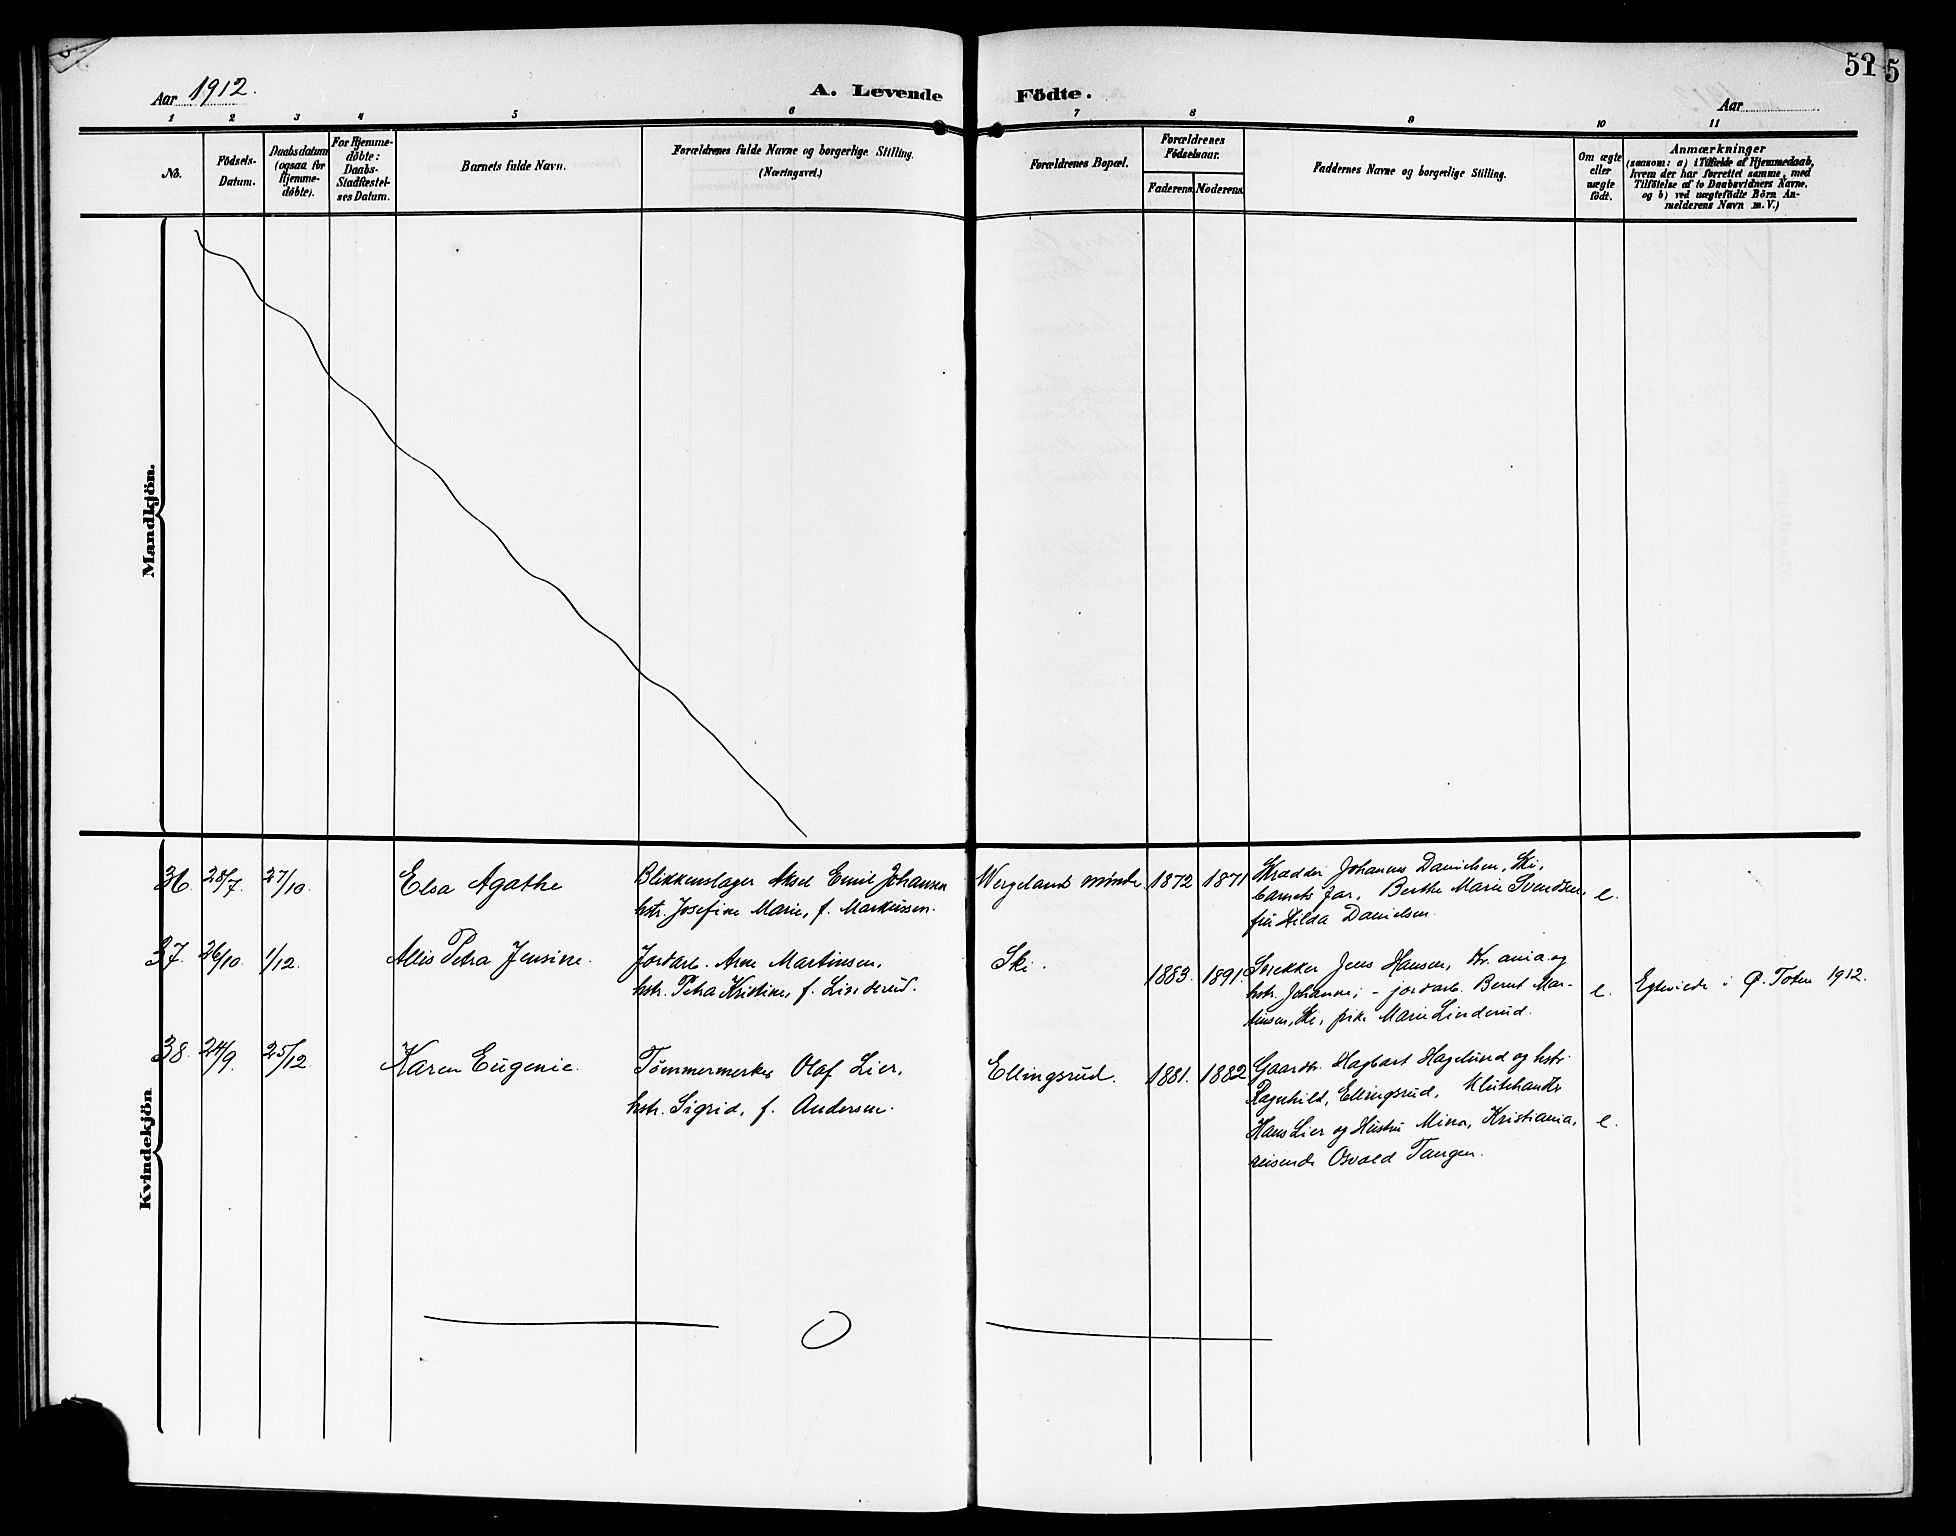 Aar 1912.
A. Levende Födte.
51
5
Aar
1 2 3 4 5 6 7 8 9 10 11
No.
Födsels-
Datum.
Daabsdatum
(ogsaa for
Hjemme-
döbte).
For Hjemme-
döbte:
Daabs-
Stadfæstel-
ses Datum.
Barnets fulde Navn.
Forældrenes fulde Navne og borgerlige Stilling.
(Næringsvei.)
Forældrenes Bopæl.
Forældrenes
Födselsaar.
Faderens. Moderens.
Faddernes Navne og borgerlige Stilling.
Om ægte
eller
uægte
født.
Anmærkninger
(saasom: a) i Tilfælde af Hjemmedaab,
hvem der har forrettet samme, med
Tilföielse af to Daabsvidners Navne,
og b) ved uægtefödte Börn An-
melderens Navn m. V.)
Mandkjön.
Kvindekjön
36. 28/7. 27/10. Elsa Agathe
Blikkenslager Aksel Emil Johansen
hstr. Josefine Marie, f. Markussen.
Wergelands minde 1872 1871
Skrædder Johannes Danielsen, Ski,
barnets far, Berthe Marie Svendsen,
fru Hilda Danielsen.
e.
37. 26/10. 1/12. Allis Petra Jensine.
Jordarb. Arne Martinsen,
hstr. Petra Kristine, f. Linderud.
Ski. 1883. 1891.
Snekker Jens Hansen, Kr.ania og
hstr. Johanne; - jordarb. Bernt Mar-
tinsen, Ski, pike Marie Linderud.
e.
Egteviede i Ø. Toten 1912.
38. 24/9. 25/12. Karen Eugenie.
Tömmermerker Olaf Lier,
hstr. Sigrid, f. Andersen.
Ellingsrud. 1881. 1882
Gaardbr. Hagbart Hagelund og hstr.
Ragnhild, Ellingsrud,
Hans Lier og Hustru Mina, Kristiania,
reisende Osvald Tangen.
e.